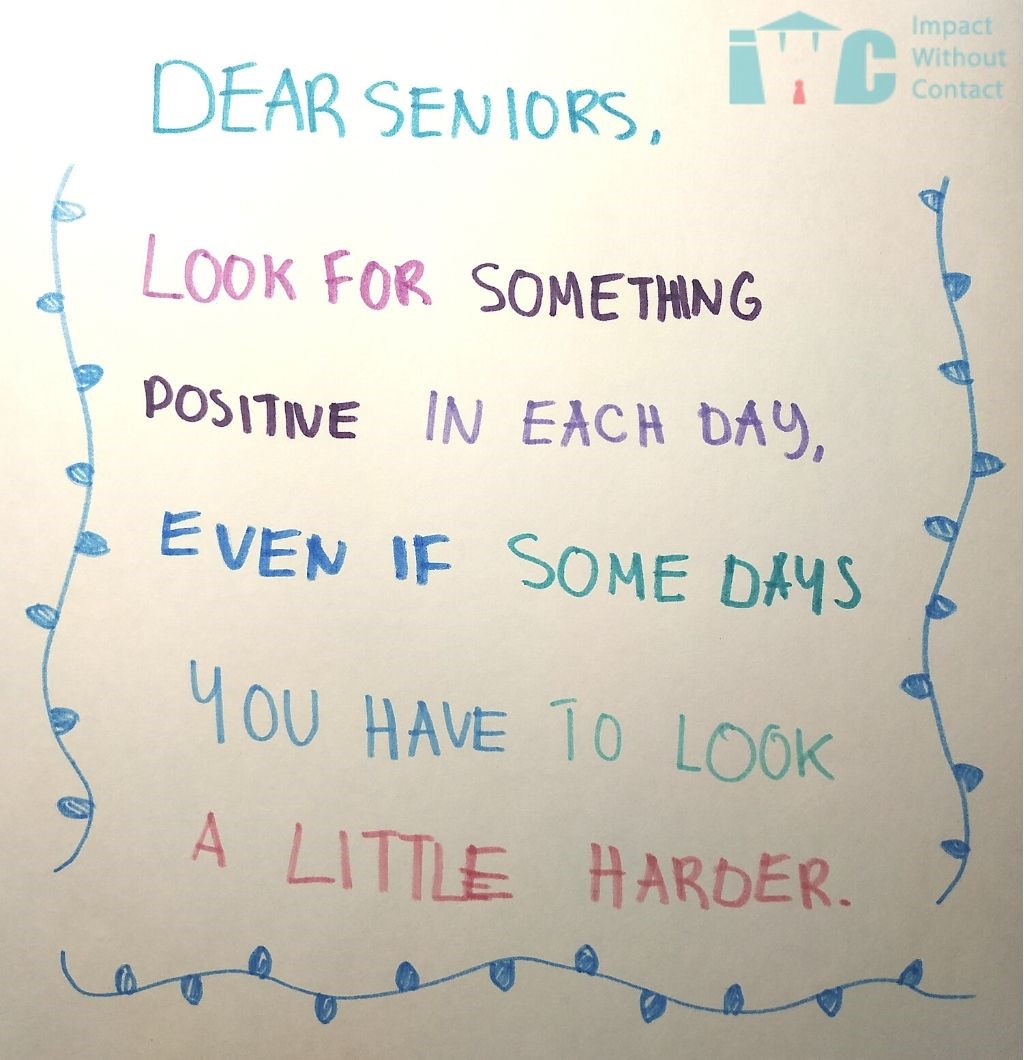 iWC Impact
Without
Contact
DEAR SENIORS,
LOOK FOR SOMETHING
POSITIVE IN EACH DAY,
EVEN IF SOME DAYS
YOU HAVE TO LOOK
A LITTLE HARDER.